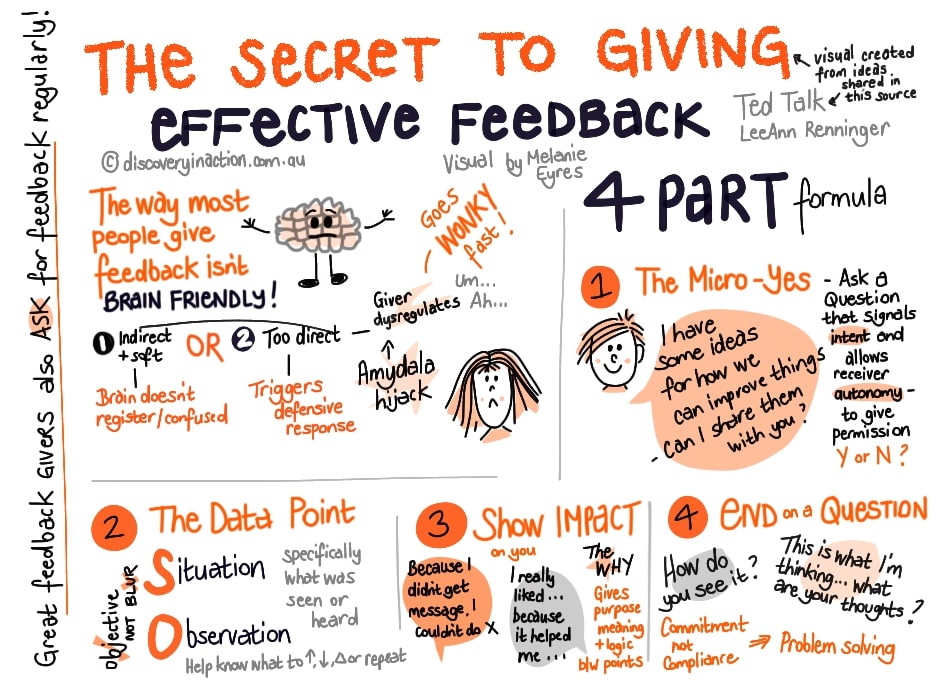 Great feedback GIVERS also ASK for feedback regularly!
THE SECRET TO GIVING
EFFECTIVE FEEDBACK
visual created
from ideas
shared in
this source
Ted Talk
LeeAnn Renninger
© discoveryinaction.com.au
Visual by Melanie
Eyres
The way most
people give
feedback isn't
BRAIN FRIENDLY!
1 Indirect
+ soft
OR
2 Too direct
Brain doesn't
register/confused
Triggers
defensive
response
Giver
dysregulates
Goes
WONKY
fast!
Um...
Ah...
Amydala
hijack
4 PART formula
1 The Micro-Yes
I have
some ideas
for how we
can improve things
- Can I share them
with you?
- Ask a
Question
that signals
intent and
allows
receiver
autonomy -
to give
permission
Y or N?
2 The Data Point
objective
NOT BLUR
Situation
Observation
specifically
what was
seen or
heard
Help know what to ↑, ↓, Δ or repeat
3 Show IMPACT
on you
Because I
didn't get
message, I
couldn't do X
I really
liked...
because
it helped
me...
The
WHY
Gives
purpose
meaning
+ logic
b/w points
4 END on a QUESTION
How do
you see it?
This is what I'm
thinking... what
are your thoughts?
Commitment
not
Compliance
⇒ Problem solving